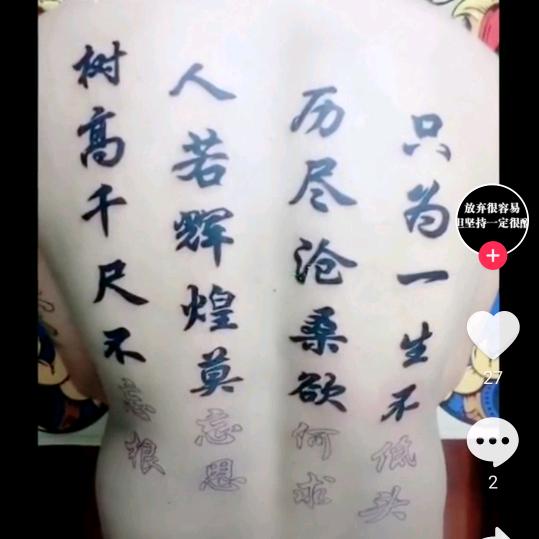 树高千尺不忘根
人若辉煌莫忘恩
历尽沧桑欲何求
只为一生不低头
放弃很容易
坚持一定很
27
2